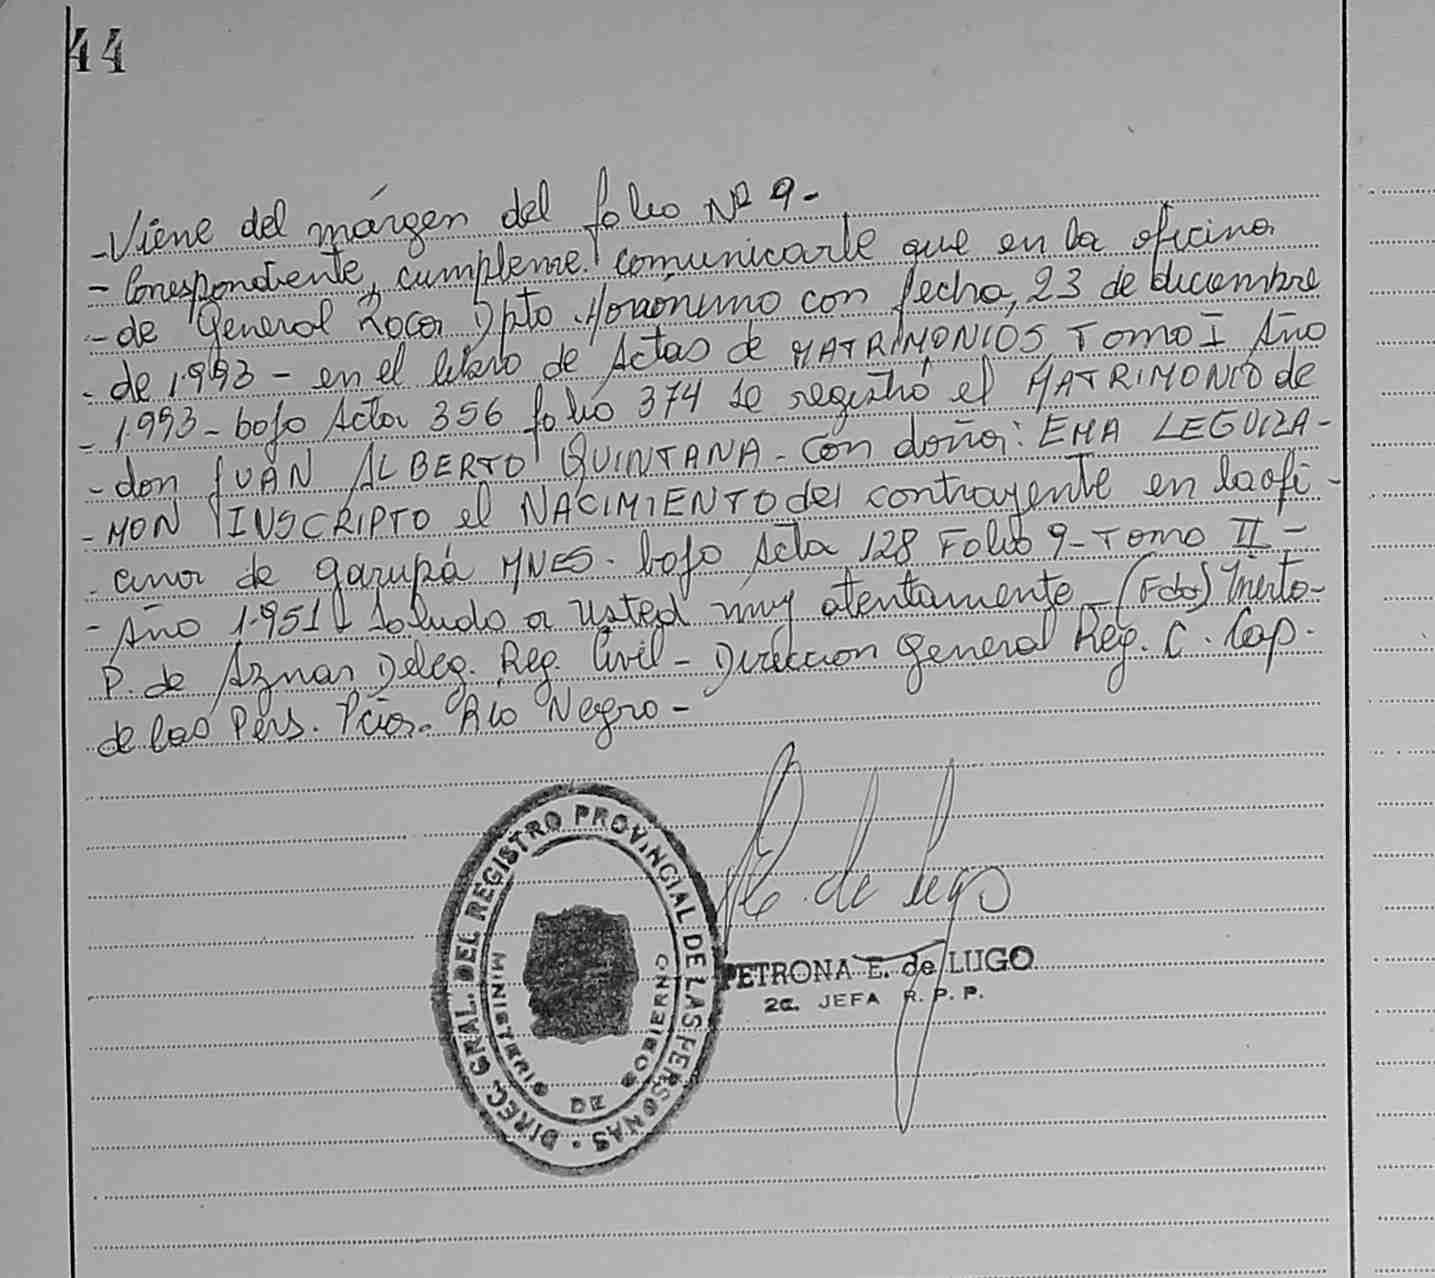 44
-Viene del márgen del folio Nº 9-
- Correspondiente, cumpleme comunicarle que en la oficina
- de General Roca Dpto
con fecha, 23 de diciembre
- de 1.993 - en el libro de Actas de MATRIMONIOS Tomo I Año
- 1.993 - bajo Acta 356 folio 374 se registró el MATRIMONIO de
- don JUAN ALBERTO QUINTANA - Con doña: EMA LEGUIZA-
- MON INSCRIPTO el NACIMIENTO del contrayente en la ofi-
- cina de Garupá MNES. bajo Acta 128 Folio 9 - Tomo II -
- Año 1.951 Saludo a Usted muy atentamente - (Fdo)
P. de Aznar Deleg. Reg. Civil - Dirección General Reg. C. Cap.
de las Pers. Pcia. Río Negro -
DIREC. GRAL. DEL REGISTRO PROVINCIAL DE LAS PERSONAS
MINISTERIO DE GOBIERNO
P E. de Lugo
PETRONA E. de LUGO
2a. JEFA R. P. P.